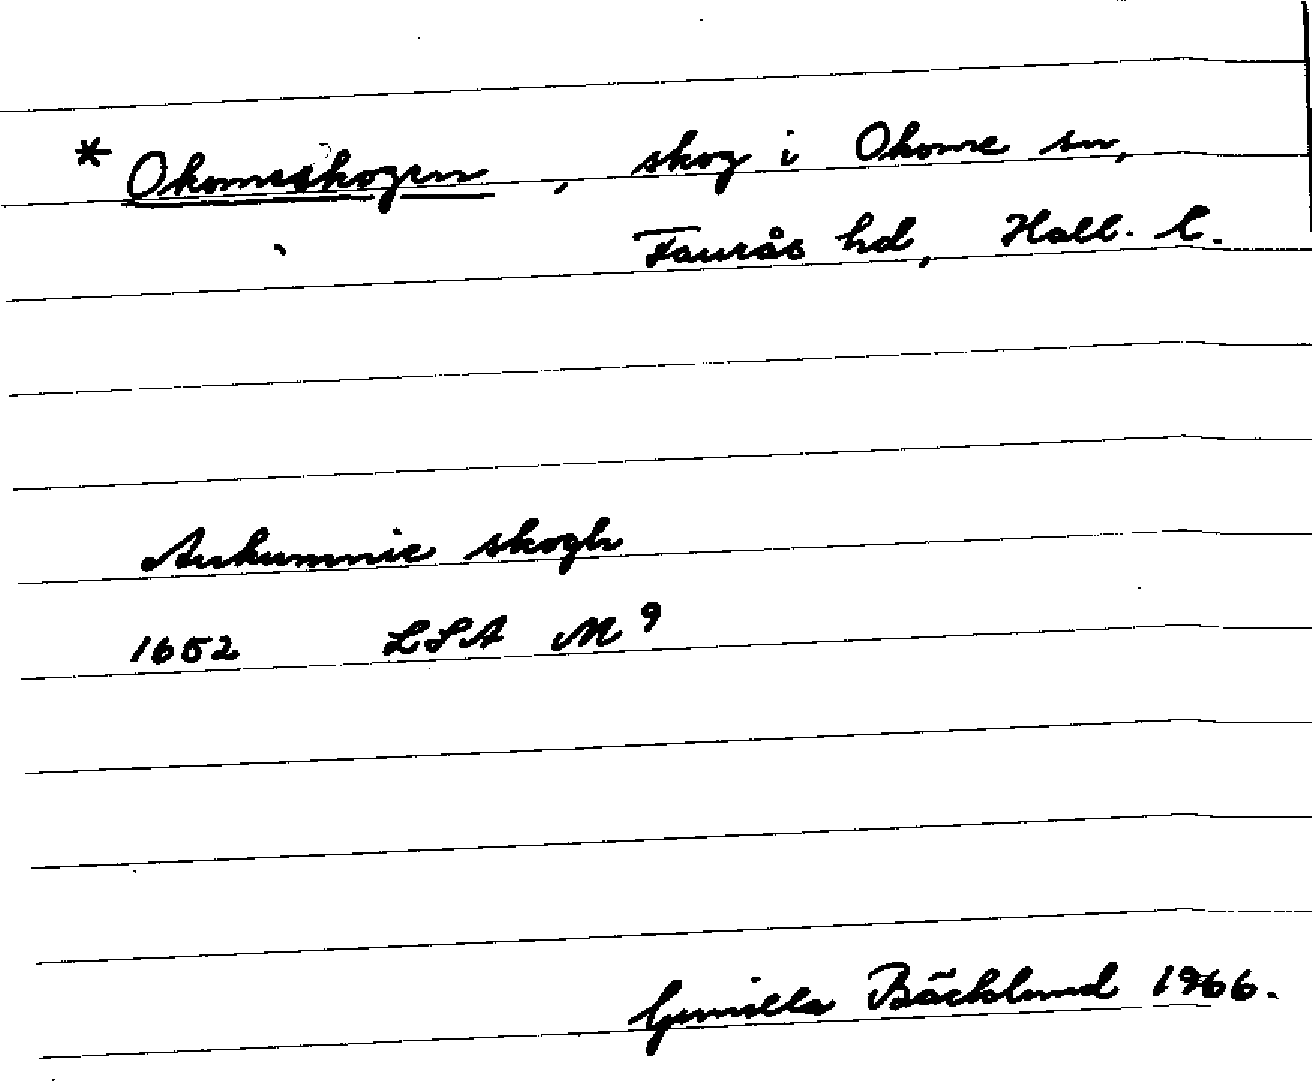 * Okomeskogen, skog i Okome sn,
Faurås hd, Hall. l.
Aukummie skogh
1652 LSA M 9
Gunilla Bäcklund 1966.